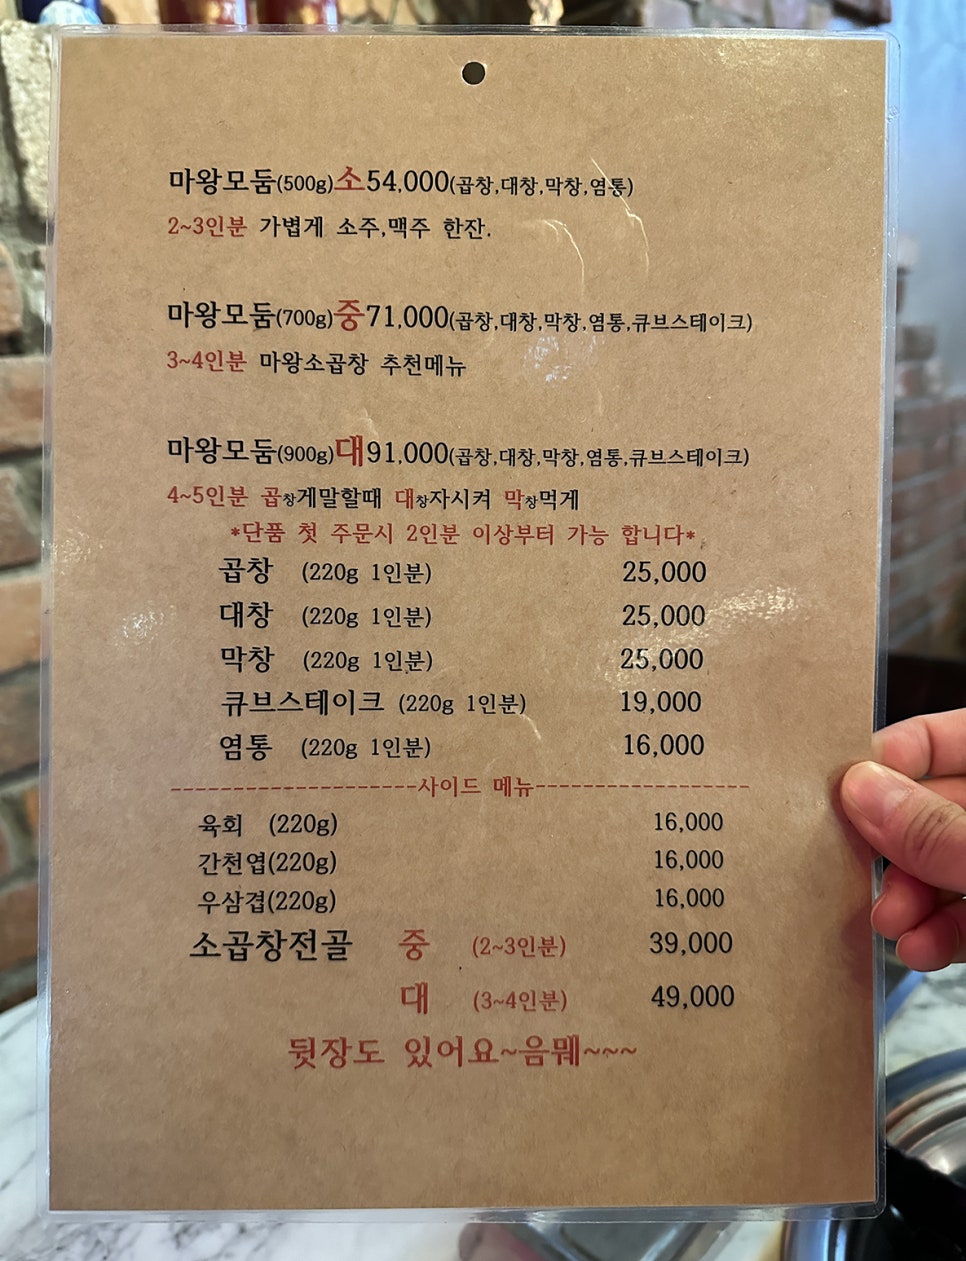 마왕모둠(500g)소54,000(곱창,대창,막창,염통)
2~3인분 가볍게 소주,맥주 한잔.
마왕모둠(700g)중71,000(곱창,대창,막창,염통,큐브스테이크)
3~4인분 마왕소곱창 추천메뉴
마왕모둠(900g)대91,000(곱창,대창,막창,염통,큐브스테이크)
4~5인분 곱창게말할때 대창자시켜 막창먹게
*단품 첫 주문시 2인분 이상부터 가능 합니다*
곱창 (220g 1인분) 25,000
대창 (220g 1인분) 25,000
막창 (220g 1인분) 25,000
큐브스테이크 (220g 1인분) 19,000
염통 (220g 1인분) 16,000
--------------------사이드 메뉴------------------
육회 (220g) 16,000
간천엽(220g) 16,000
우삼겹(220g) 16,000
소곱창전골 중 (2~3인분) 39,000
대 (3~4인분) 49,000
뒷장도 있어요~음뭬~~~